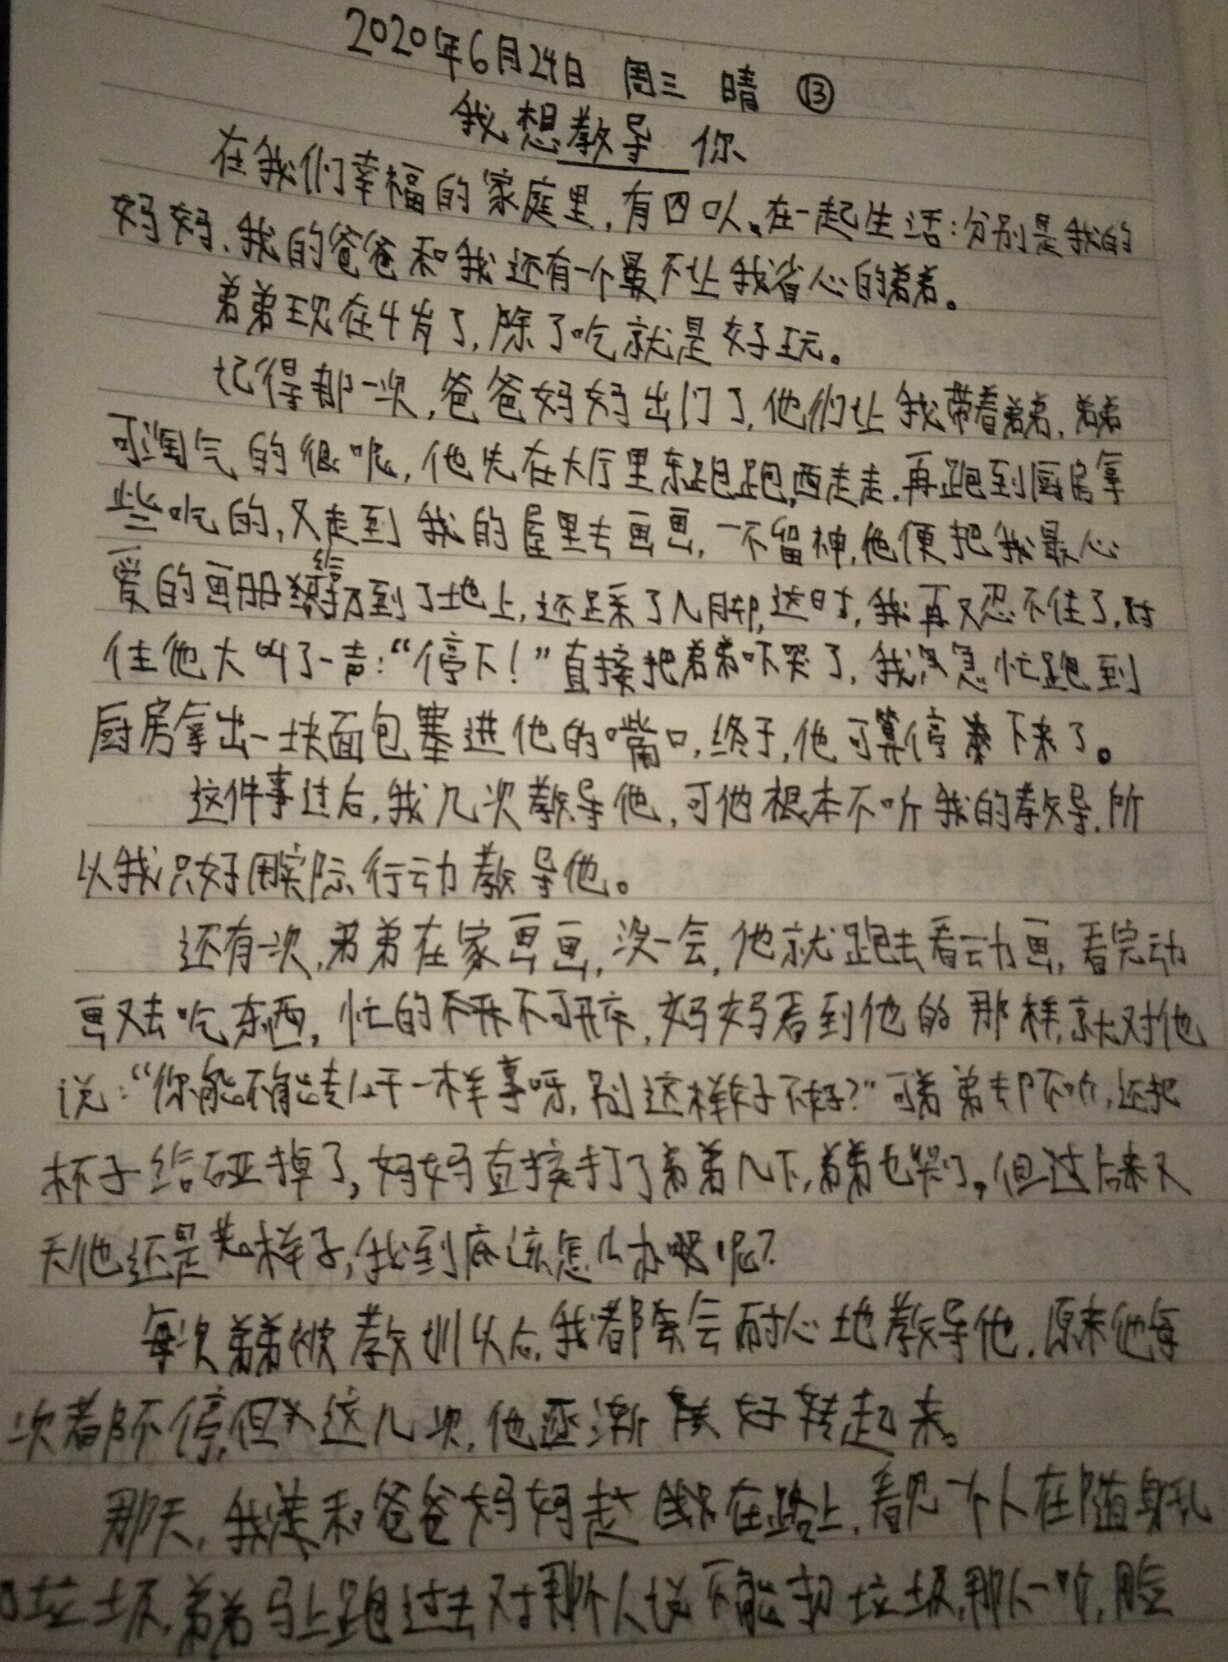 2020年6月24日 周三 晴 ⑬
我想教导你
在我们幸福的家庭里,有四口人,在一起生活:分别是我的
妈妈、我的爸爸和我还有一个最不让我省心的弟弟。
弟弟现在4岁了,除了吃就是好玩。
记得那一次,爸爸妈妈出门了,他们让我带着弟弟,弟弟
可淘气的很呢,他先在大厅里东跑跑,西走走,再跑到厨房拿
些吃的,又走到我的屋里去画画,一不留神,他便把我最心
爱的画册给扔到了地上,还踩了几脚,这时,我再又忍不住了,对
住他大叫了一声:“停下!”直接把弟弟吓哭了,我急忙跑到
厨房拿出一块面包塞进他的嘴口,终于,他可算停下来了。
这件事过后,我几次教导他,可他根本不听我的教导,所
以我只好用实际行动教导他。
还有一次,弟弟在家画画,没一会,他就跑去看动画,看完动
画又去吃东西,忙的不可开交,妈妈看到他的那样,就对他
说:“你能不能专心干一样事呀,别这样子不好?”可弟弟却不听,还把
杯子给碰掉了,妈妈直接打了弟弟几下,弟弟也哭了,但过后来又
天他还是老样子,我到底该怎么办呢?
每次弟弟被教训以后,我都会耐心地教导他,原来他每
次都不停,但这几次,他逐渐好转起来。
那天,我和爸爸妈妈在路上,看见一个人在随身乱
垃圾,弟弟马上跑过去对那个人说不能扔垃圾,那人一听,脸